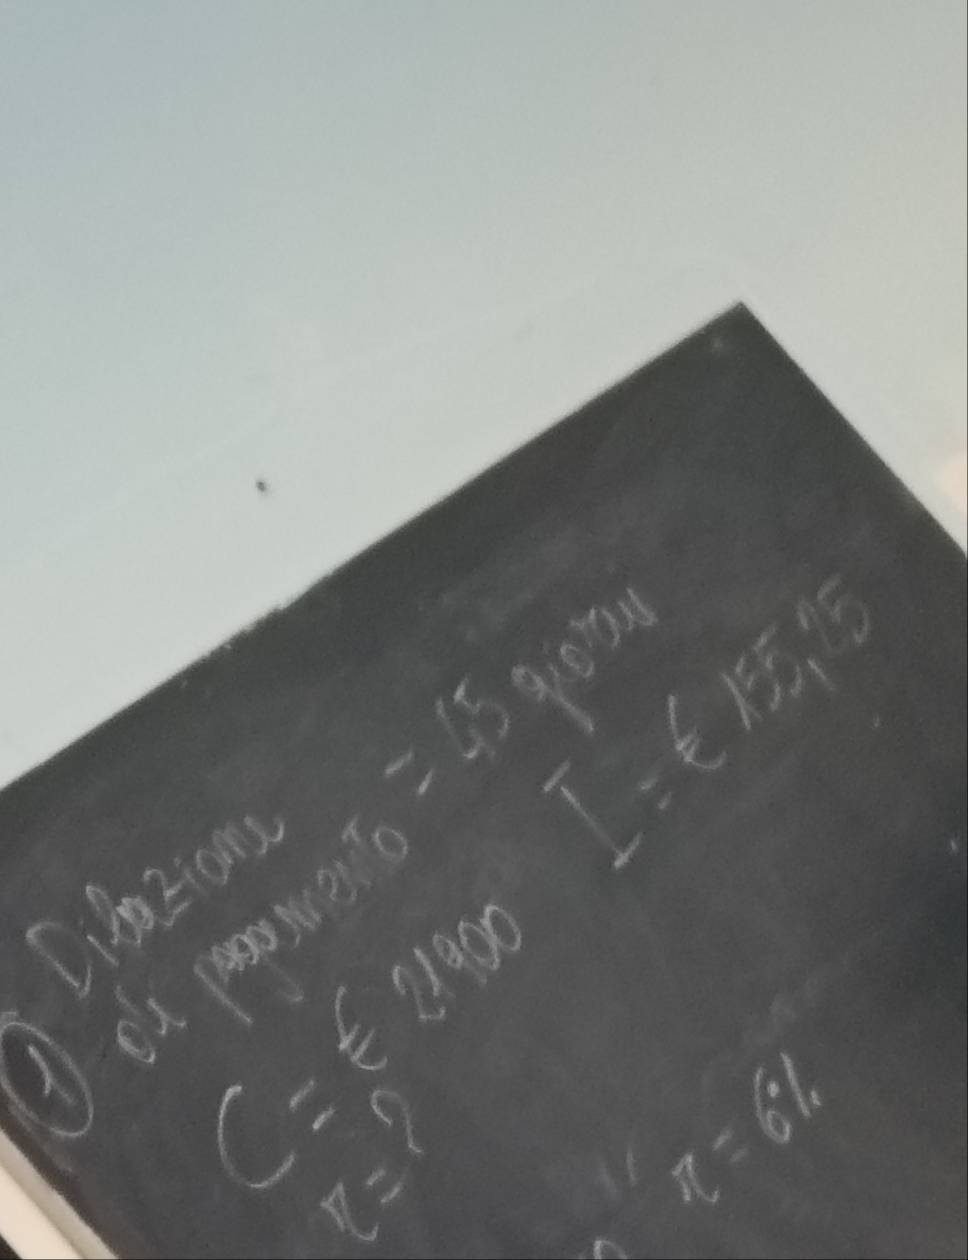 ① Dilazione
di pagamento = 45 giorni
C = € 21900 I = € 155,25
r = ?
r = 6%